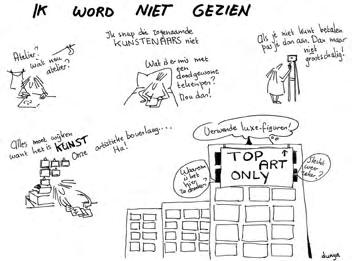 IK WORD NIET GEZIEN
Atelier?
wat nou
atelier?
Ik snap die zogenaamde
KUNSTENAARS niet
Wat is er mis met
een
doodgewone
tekenpen?
Nou dan!
Als je niet kunt betalen
pas je dan aan. Dan maar
niet
grootschalig!
Alles moet wijken
want het is KUNST
Onze artistieke bovenlaag....
Ha!
Verwende luxe-figuren!
Waarom
u het
hier
zo donker?
TOP
ART
ONLY
Slecht
weer
zeker?
dunya